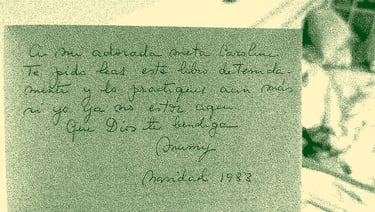 A mi adorada nieta Carolina
Te pido leas este libro detenida-
mente y lo practiques aun más
si yo ya no estoy aquí.
Que Dios te bendiga
Mumy
Navidad 1983